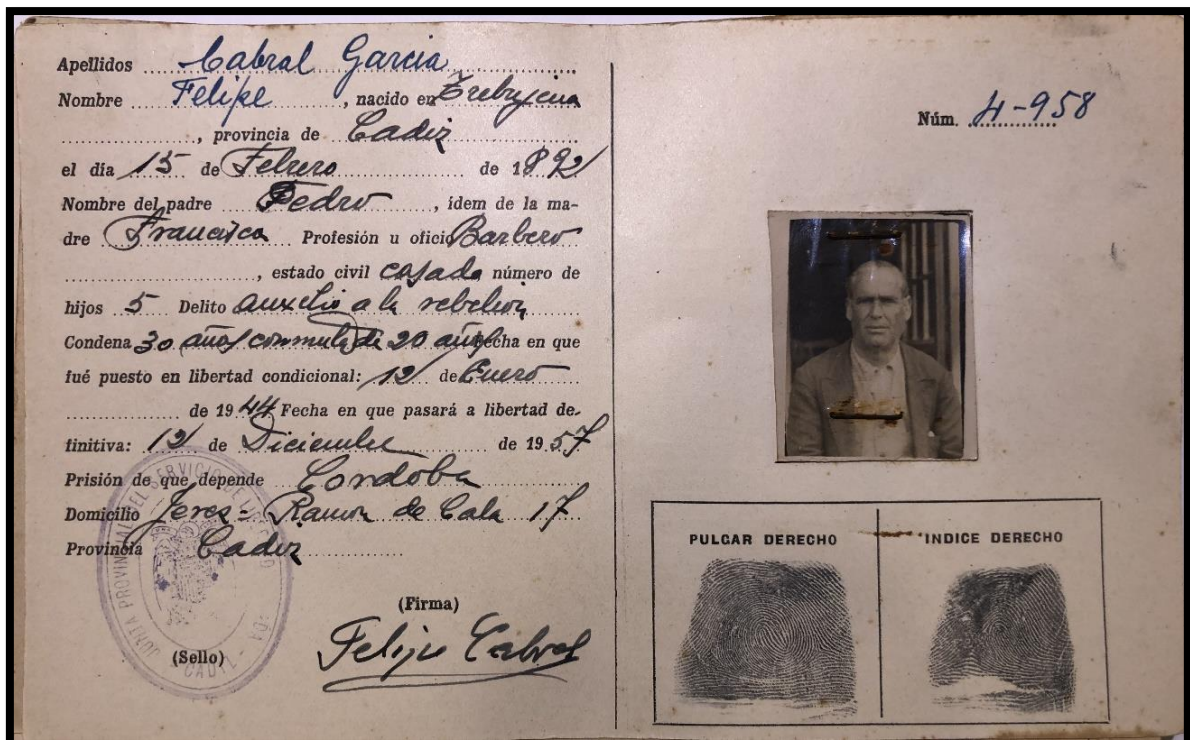 Apellidos Cabral Garcia
Nombre Felipe, nacido en Trebujena
, provincia de Cadiz
el día 15 de Febrero de 1892
Nombre del padre Pedro, ídem de la ma-
dre Francisca Profesión u oficio Barbero
, estado civil casado número de
hijos 5 Delito auxilio a la rebelion
Condena 30 años conmutada 20 años fecha en que
fué puesto en libertad condicional: 12 de Enero
de 1944 Fecha en que pasará a libertad de-
finitiva: 12 de Diciembre de 1957
Prisión de que depende Cordoba
Domicilio Jerez = Ramon de Cala 17
Provincia Cadiz
(Firma)
Felipe Cabral
(Sello)
JUNTA PROVINCIAL DEL SERVICIO DE
CADIZ
Núm. 4-958
PULGAR DERECHO
INDICE DERECHO